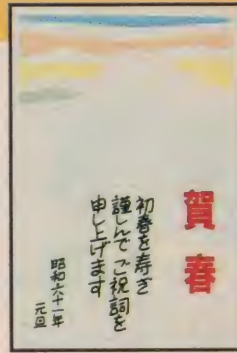 賀春
初春を寿ぎ
謹んでご祝詞を
申し上げます
昭和六十一年
元旦